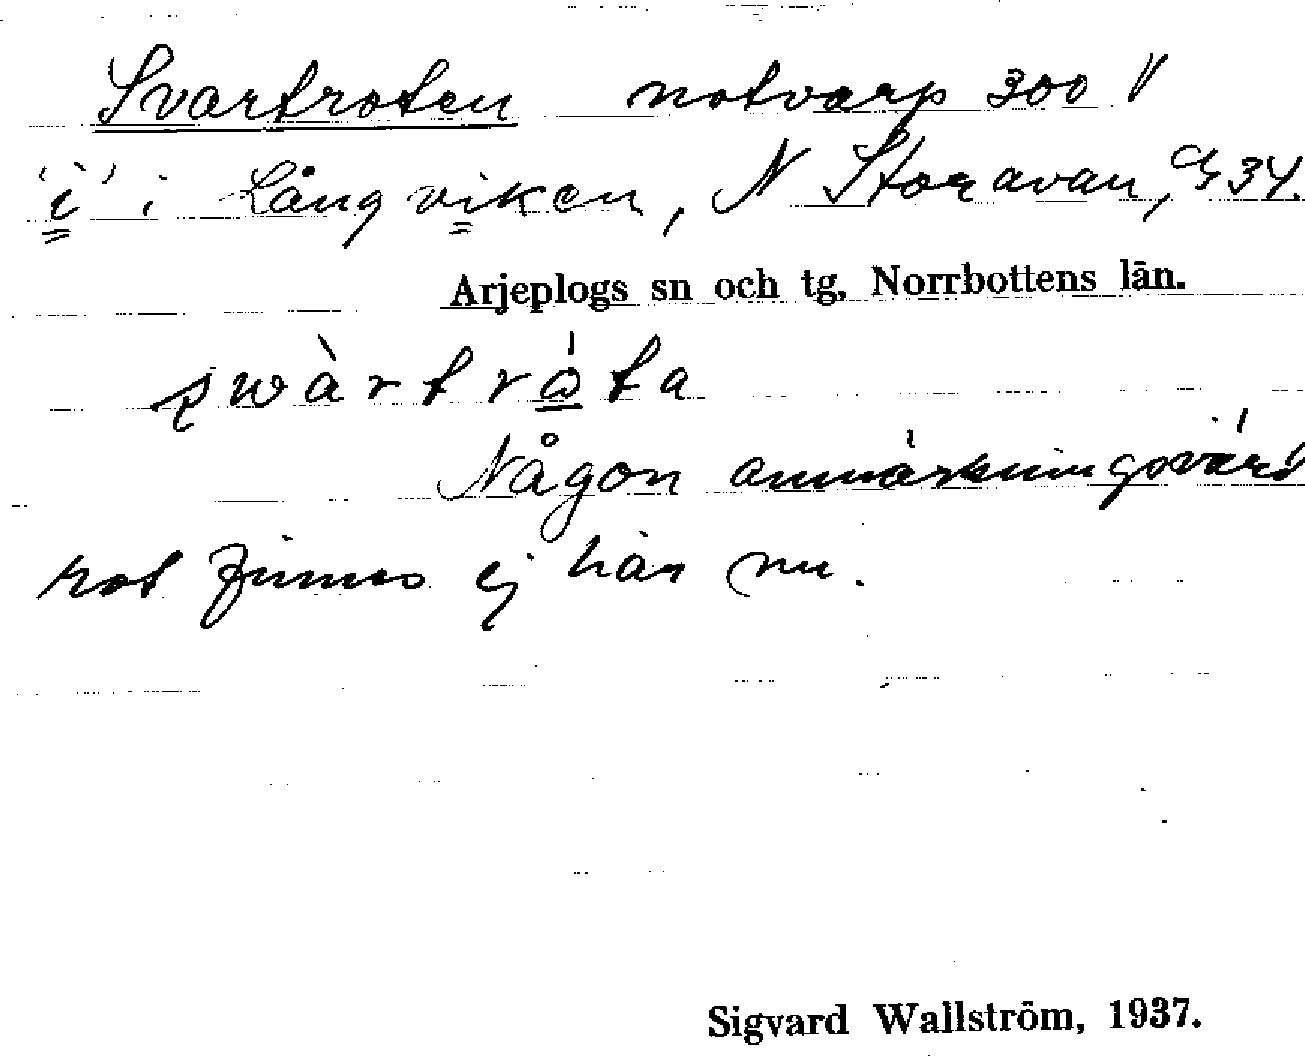 Svartroten notvarp 300 V
'i' i Långviken, N Storavan, G 34.
Arjeplogs sn och tg, Norrbottens län.
swàrtróta
Någon anmärkningsvärd
rot finnes ej här nu.
Sigvard Wallström, 1937.